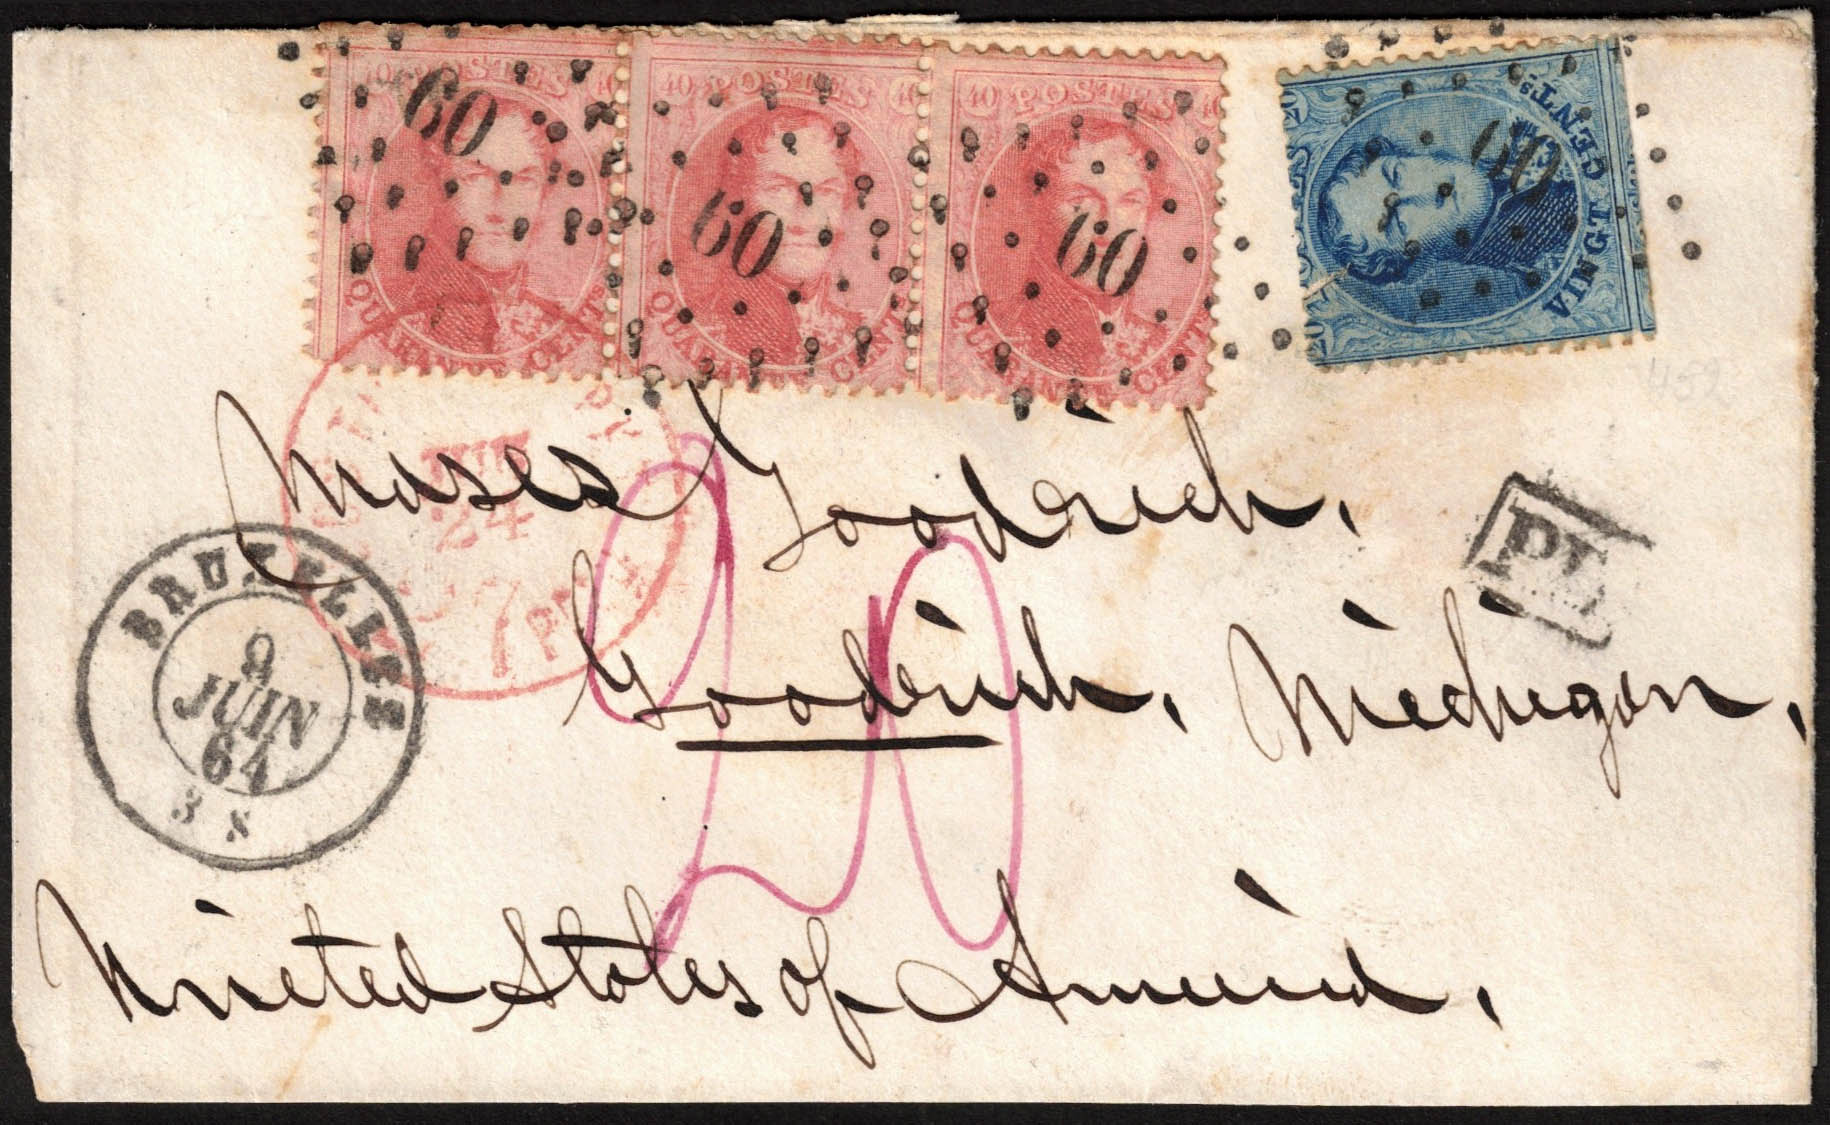 40 POSTES 40
40 POSTES 40
40 POSTES 40
60
60
60
60
QUARANTE CENTS
QUARANTE CENTS
QUARANTE CENTS
20
VINGT CENTS
20
452
Moses Goodrich,
Goodrich, Michigan,
United States of America.
20
PD
JUN
24
7 PD
BRUXELLES
9
JUIN
64
3 S